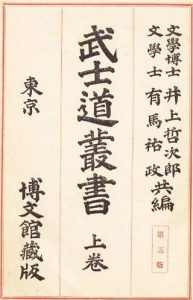 文學博士 井上哲次郎
文學士 有馬祐政
共編
武士道叢書
上卷
第五版
東京
博文館藏版